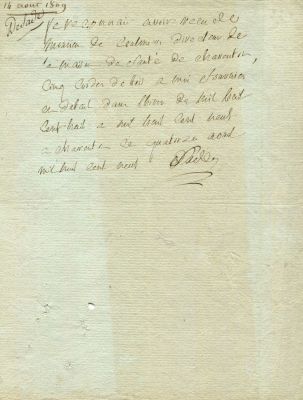 14 aout 1809
De Sade
je reconnais avoir recu de
monsieur de Coulmier directeur de
la maison de santé de charenton,
cinq cordes de bois a moi fournies
en detail dans l'hiver de mil huit
cent huit a mil huit cent neuf
a charenton ce quatorze aout
mil huit cent neuf